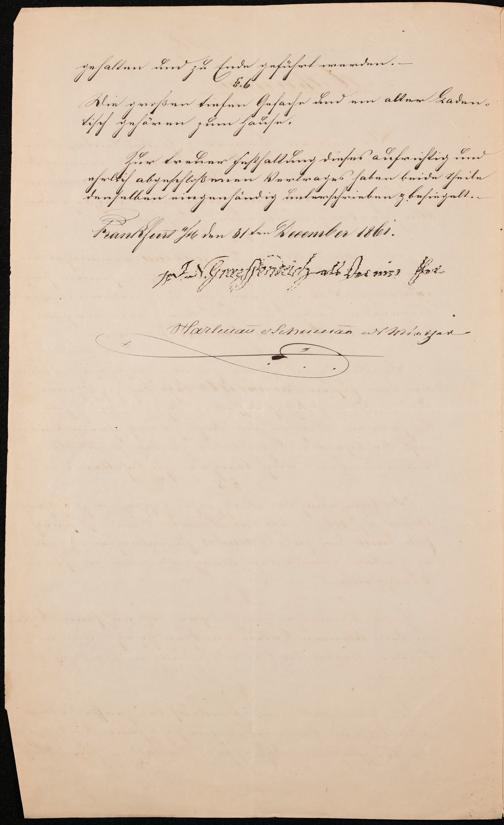 gehalten und zu Ende geführt werden. —
§. 6
Die großen tiefen Gefache und ein alter Laden-
tisch gehören zum Hause.
Zur treuer Festhaltung dieses aufrichtig und
ehrlich abgeschloßenen Vertrages haben beide Theile
denselben eigenhändig unterschrieben & besiegelt. —
Frankfurt a/M den 31ten Dezember 1861.
als Vermiether
Hartmann als Miether